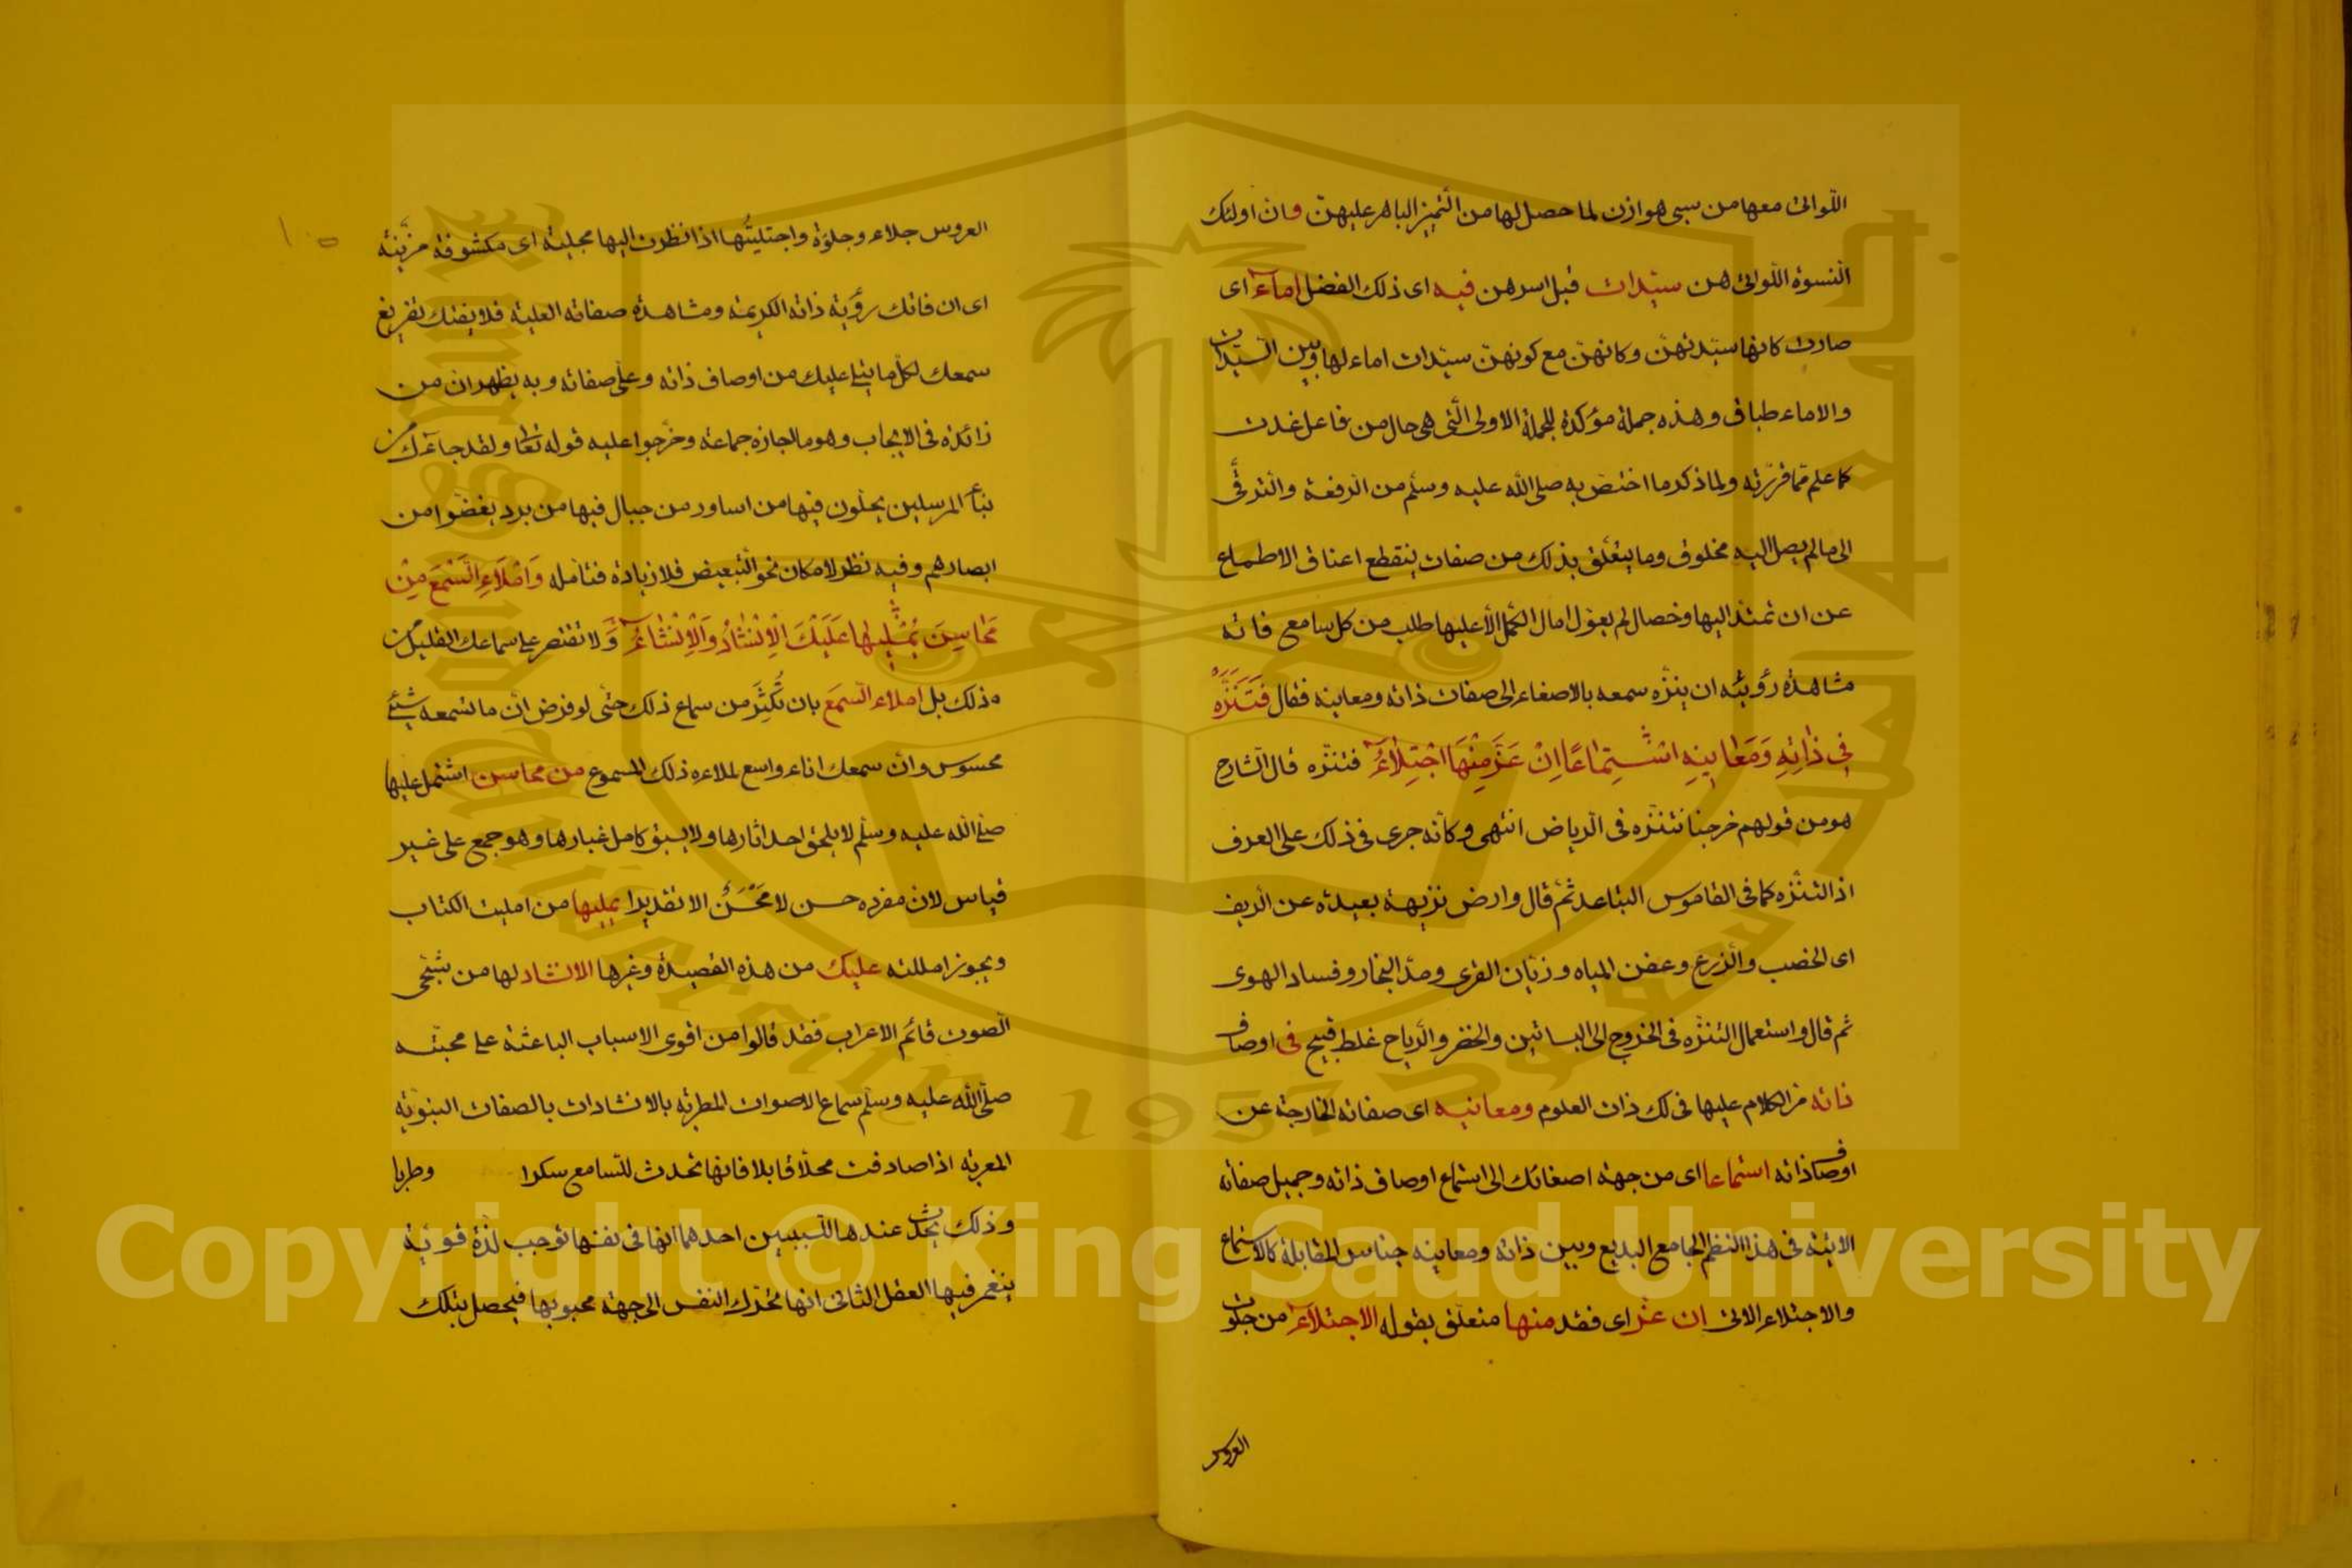 اللواتي معها من سبي هوازن لما حصل لها من التميز الباهر عليهن وان اولئك
النسوة اللواتي هن سيدات قبل اسرهن فيه اى ذلك الفضل اماء اى
صارت كانها سيدتهن وكانهن مع كونهن سيدات اماء لها وبين السيدات
والاماء طباق وهذه جملة مؤكدة للجملة الاولى التى هى حال من فاعل غدت
كما علم مما قررته ولما ذكر ما اختص به صلى الله عليه وسلم من الرفعة والترقى
الى ما لم يصل اليه مخلوق وما يتعلق بذلك من صفات ينقطع اعناق الاطماع
عن ان تمتد اليها وخصال لم يعول امال الكمل الا عليها طلب من كل سامع فاته
مشاهدة رؤيته ان ينزه سمعه بالاصغاء الى صفات ذاته ومعانيه فقال فَتَنَزَّهْ
فِي ذَاتِهِ وَمَعَانِيهِ اسْتِمَاعًا اِنْ عَزَّ مِنْهَا اجْتِلَاءُ فتنزه قال الشارح
هو من قولهم خرجنا نتنزه فى الرياض انتهى وكأنه جرى فى ذلك على العرف
اذ التنزه كما فى القاموس التباعد ثم قال وارض نزيهة بعيدة عن الريف
اى الخصب والزرع وعفن المياه وذبان القرى ومد البخار وفساد الهوى
ثم قال واستعمال التنزه فى الخروج الى البساتين والخضر والرياح غلط قبيح فى اوصاف
ذاته مر الكلام عليها فى لك ذات العلوم ومعانيه اى صفاته الخارجة عن
اوصاف ذاته استماعا اى من جهة اصغائك الى استماع اوصاف ذاته وجميل صفاته
الاتية فى هذا النظم الجامع البديع وبين ذاته ومعانيه جناس المقابلة كالاستماع
والاجتلاء الاتى ان عز اى فقد منها متعلق بقوله الاجتلاء من جلوت
العروس
١٠٥
العروس جلاء وجلوة واجتليتها اذا نظرت اليها مجلية اى مكشوفة مزينة
اى ان فاتك رؤية ذاته الكريمة ومشاهدة صفاته العلية فلا يفتك تفريغ
سمعك لكل ما يتلى عليك من اوصاف ذاته وعلى صفاته وبه يظهر ان من
زائدة فى الايجاب وهو ما اجازه جماعة وخرجوا عليه قوله تعا ولقد جاءك من
نبأ المرسلين يحلون فيها من اساور من جبال فيها من برد يغضوا من
ابصارهم وفيه نظر لامكان نحو التبعيض فلا زيادة فتامله وَامْلَاءِ السَّمْعَ مِنْ
مَحَاسِنَ يُمْلِيهَا عَلَيْكَ الْاِنْشَادُ وَالْاِنْشَاءُ وَلا تقتصر على سماعك القليل من
ذلك بل املاء السمع بان تُكثِرَ من سماع ذلك حتى لو فرض ان ما تسمعه شئ
محسوس وان سمعك اناء واسع لملاءه ذلك المسموع من محاسن اشتمل عليها
صلى الله عليه وسلم لا يلحق احد اثارها ولا يسبق كامل غبارها وهو جمع على غير
قياس لان مفرده حسن لا مَحْسَنُ الا تقديرا يمليها من امليت الكتاب
ويجوز امللته عليك من هذه القصيدة وغيرها الانشاد لها من شجى
الصوت قائم الاعراب فقد قالوا من اقوى الاسباب الباعثة على محبته
صلى الله عليه وسلم سماع الاصوات المطربة بالانشادات بالصفات النبوية
المعربة اذا صادفت محلا قابلا فانها تحدث للسامع سكرا وطربا
وذلك يحدث عندها لسببين احدهما انها فى نفسها توجب لذة قوية
ينغمر فيها العقل الثانى انها تحرك النفس الى جهة محبوبها فيحصل بتلك
Copyright © King Saud University
King Saud University
جامعة الملك سعود
1957